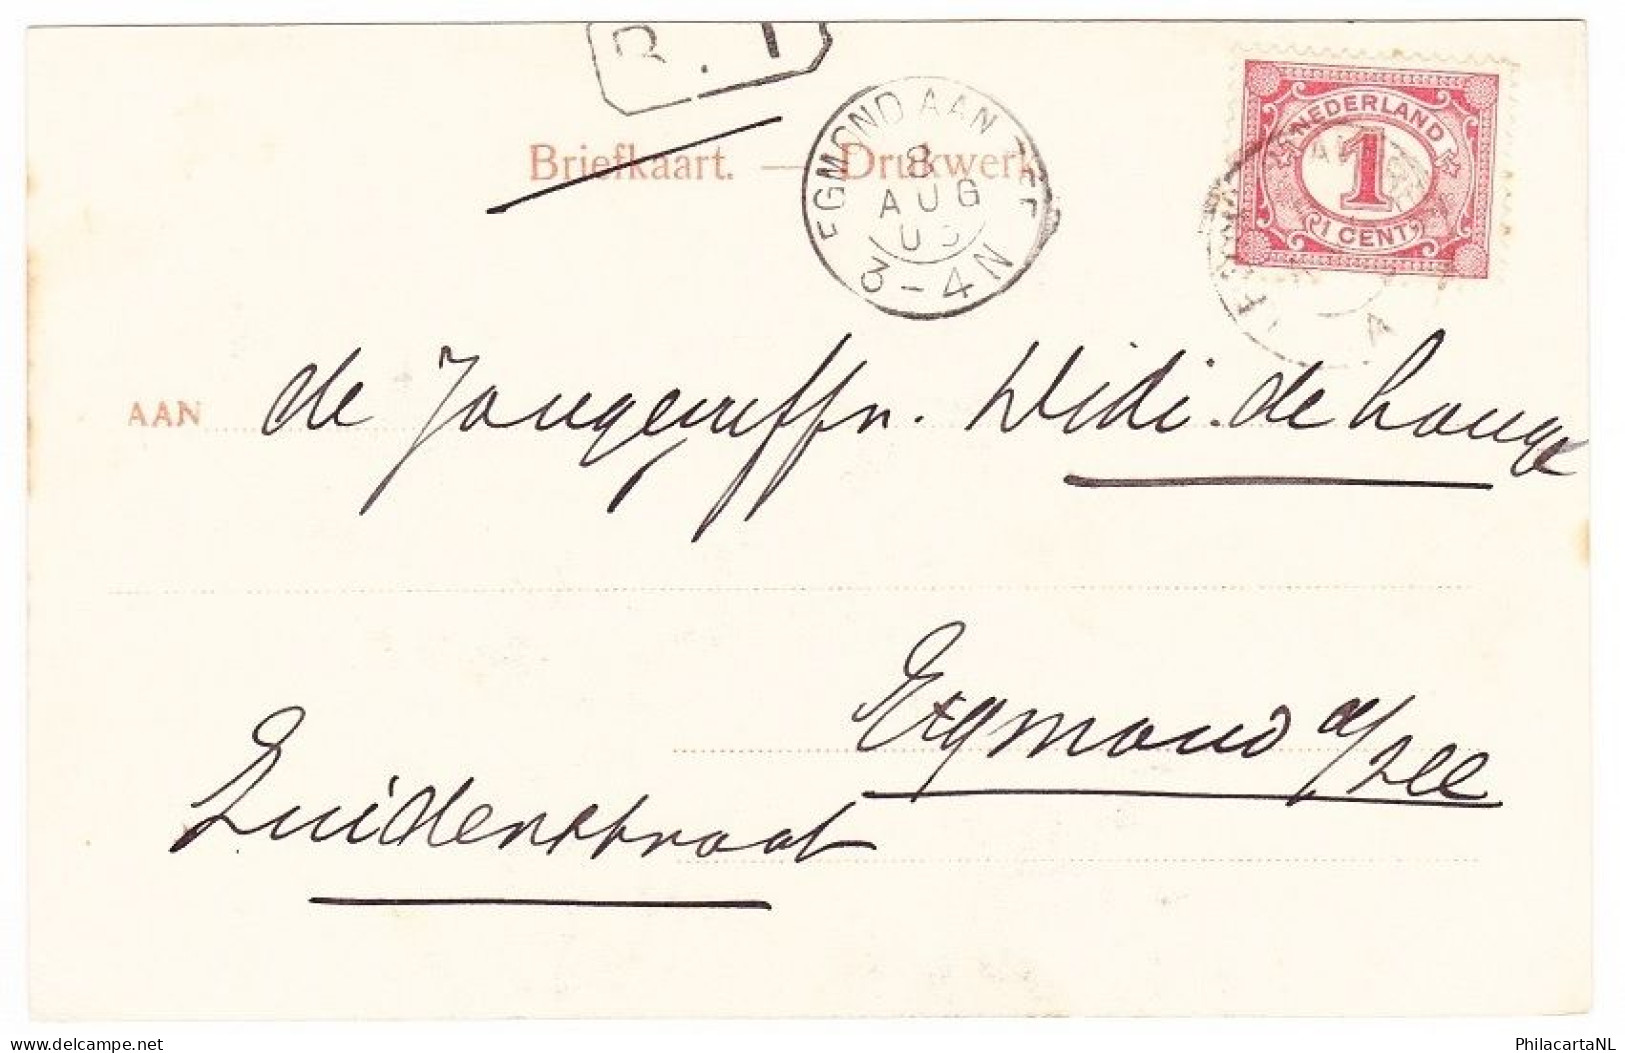 Briefkaart. — Drukwerk
EGMOND AAN ZEE
8
AUG
3-4N
NEDERLAND
1
1 CENT
AAN de Jongejuffn. Didi de Lange
Egmond a/zee
Zuidenstraat
delcampe.net
PhilacartaNL